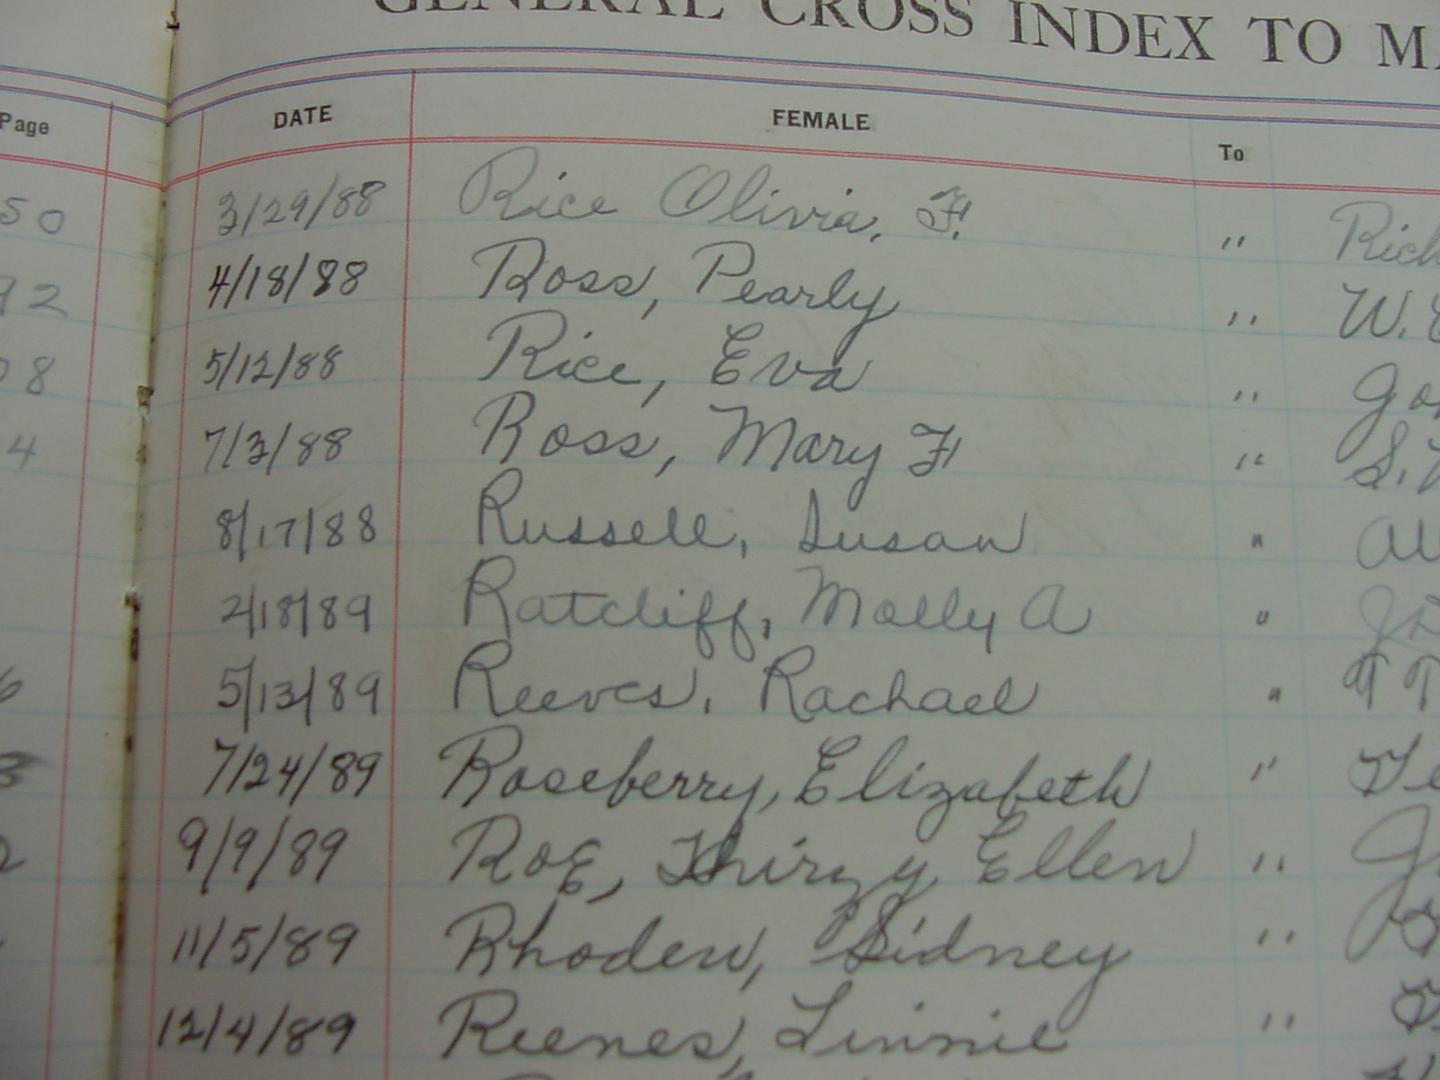 GENERAL CROSS INDEX TO MA
Page DATE FEMALE To
50 3/29/88 Rice Olivia, F. " Rich
92 4/18/88 Ross, Pearly " W.
08 5/12/88 Rice, Eva "
4 7/3/88 Ross, Mary F " S.
8/17/88 Russell, Susan "
2/18/89 Ratcliff, Molly A "
6 5/13/89 Reeves, Rachael "
3 7/24/89 Roseberry, Elizabeth "
2 9/9/89 Roe, Thirzy Ellen "
11/5/89 Rhoden, Sidney "
12/4/89 Reenes, Linnie "